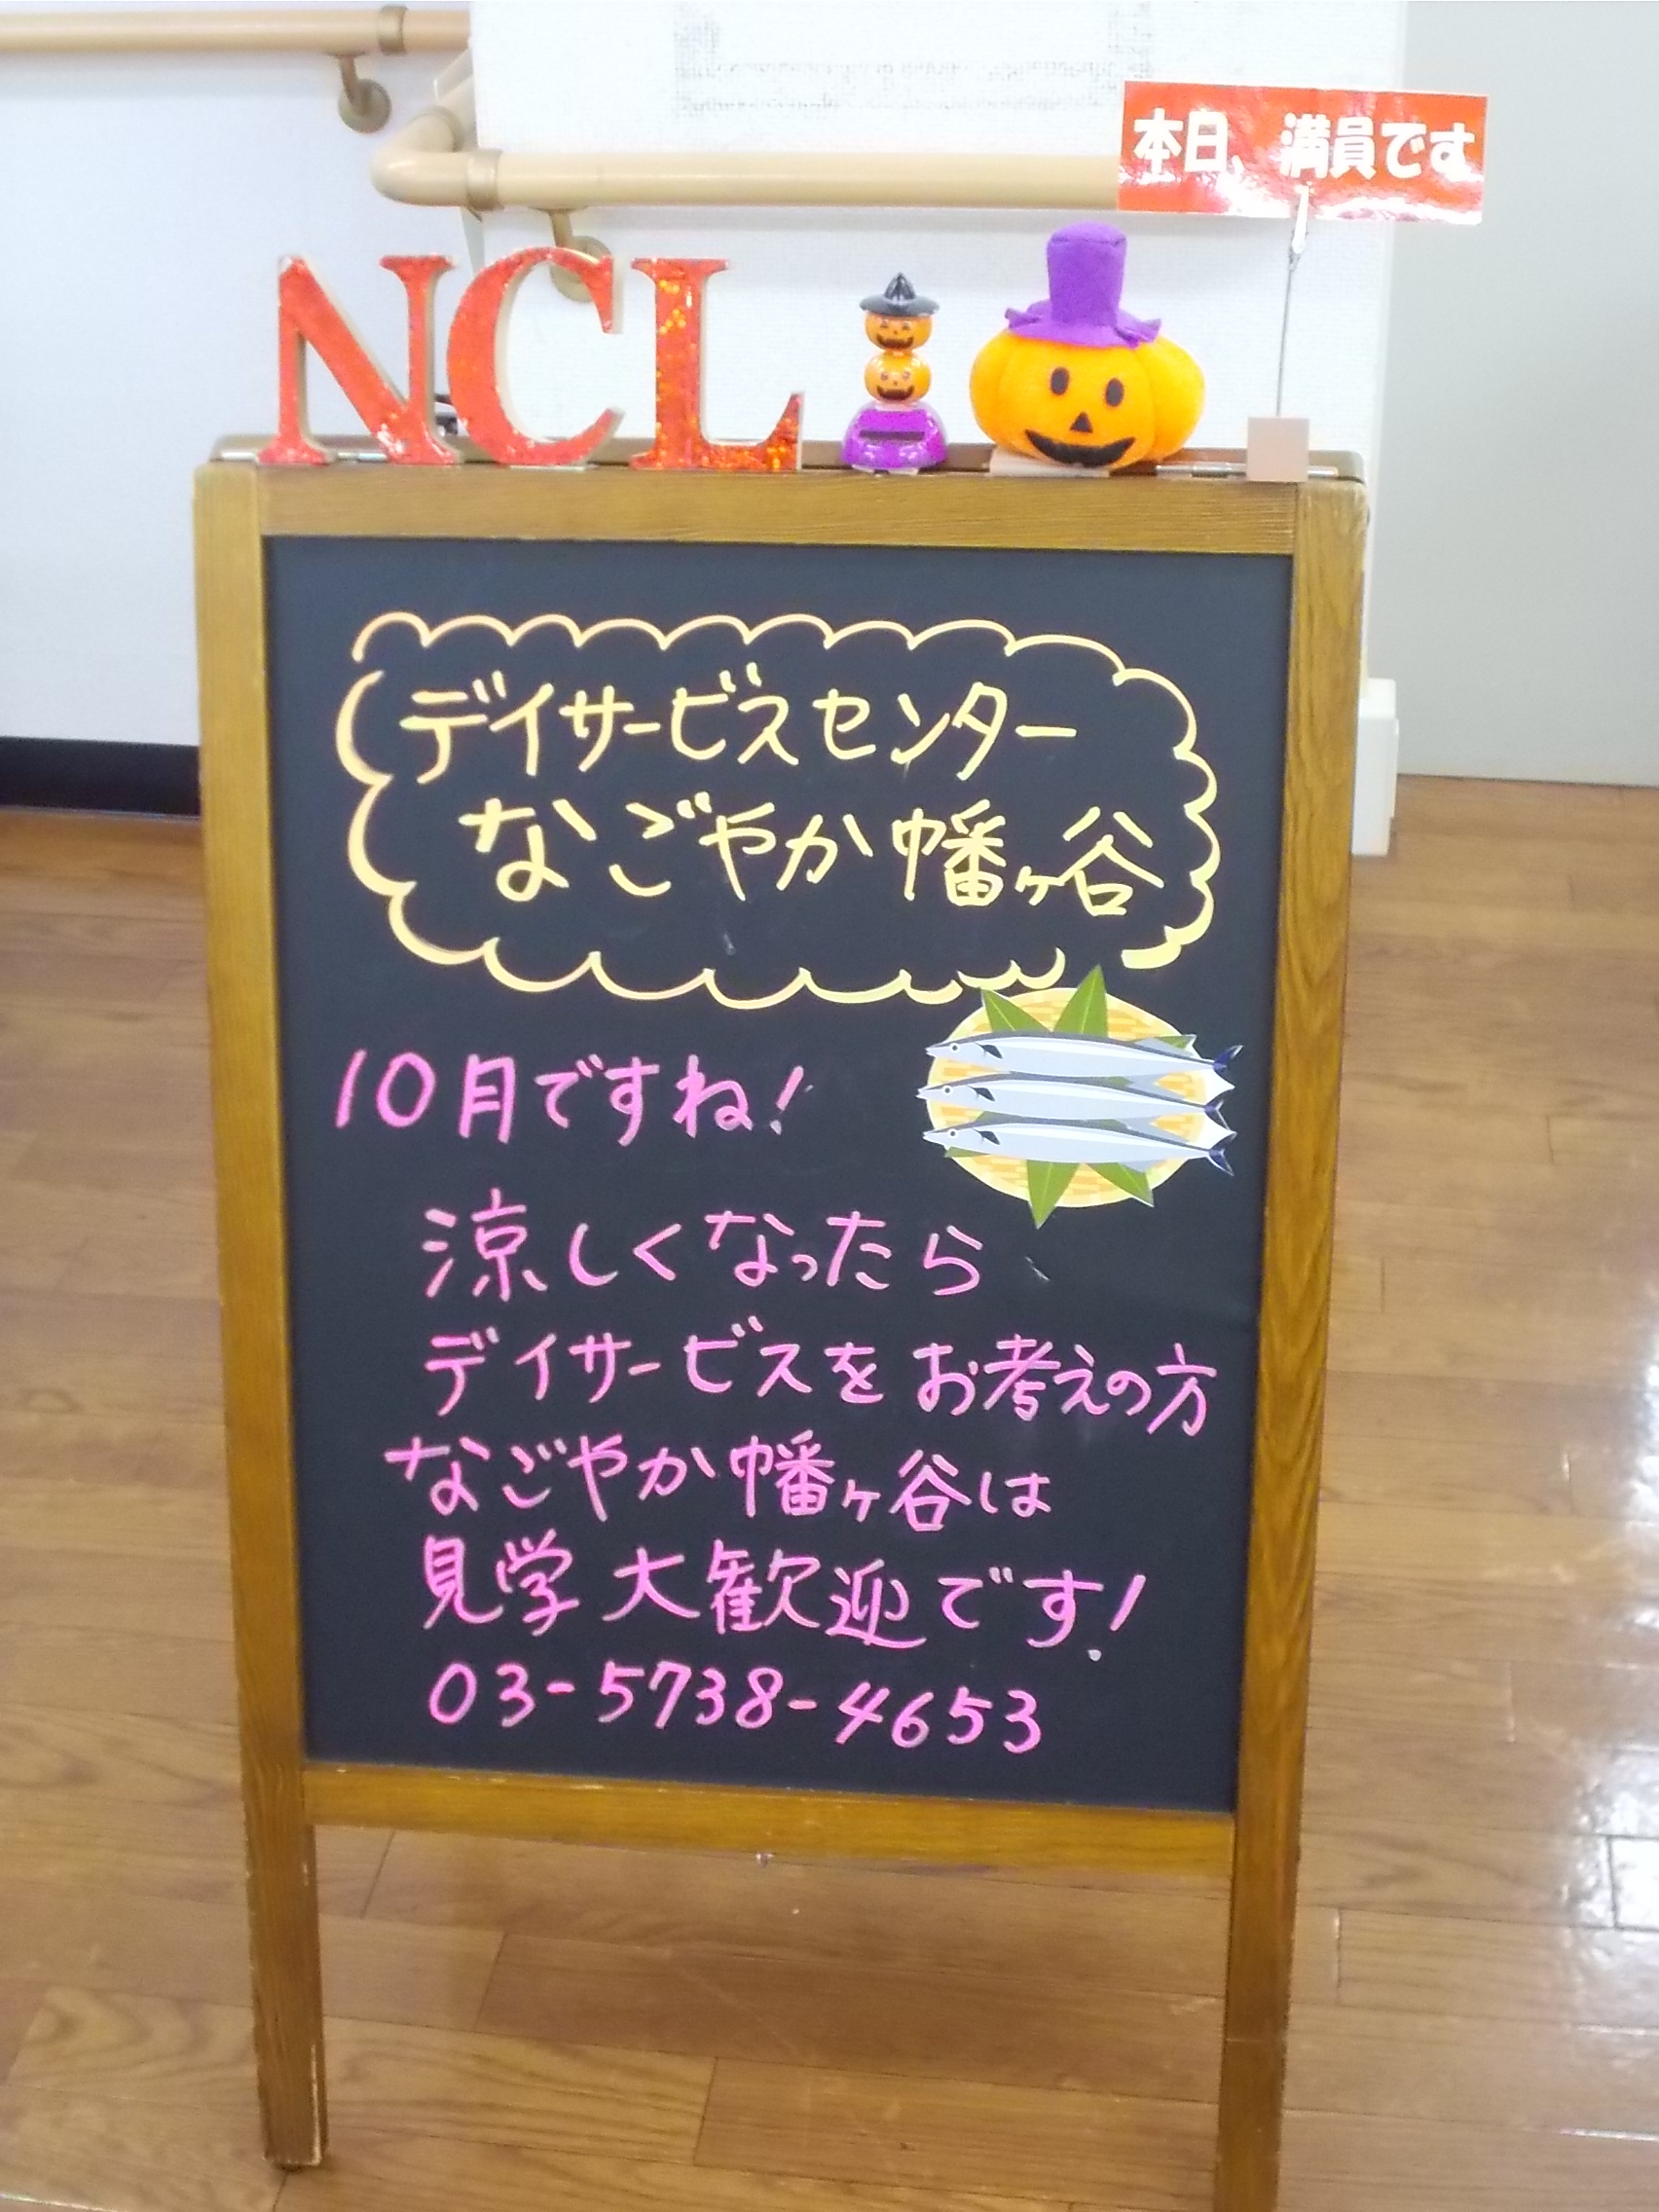 本日、満員です
NCL
デイサービスセンター
なごやか幡ヶ谷
10月ですね!
涼しくなったら
デイサービスをお考えの方
なごやか幡ヶ谷は
見学大歓迎です!
03-5738-4653